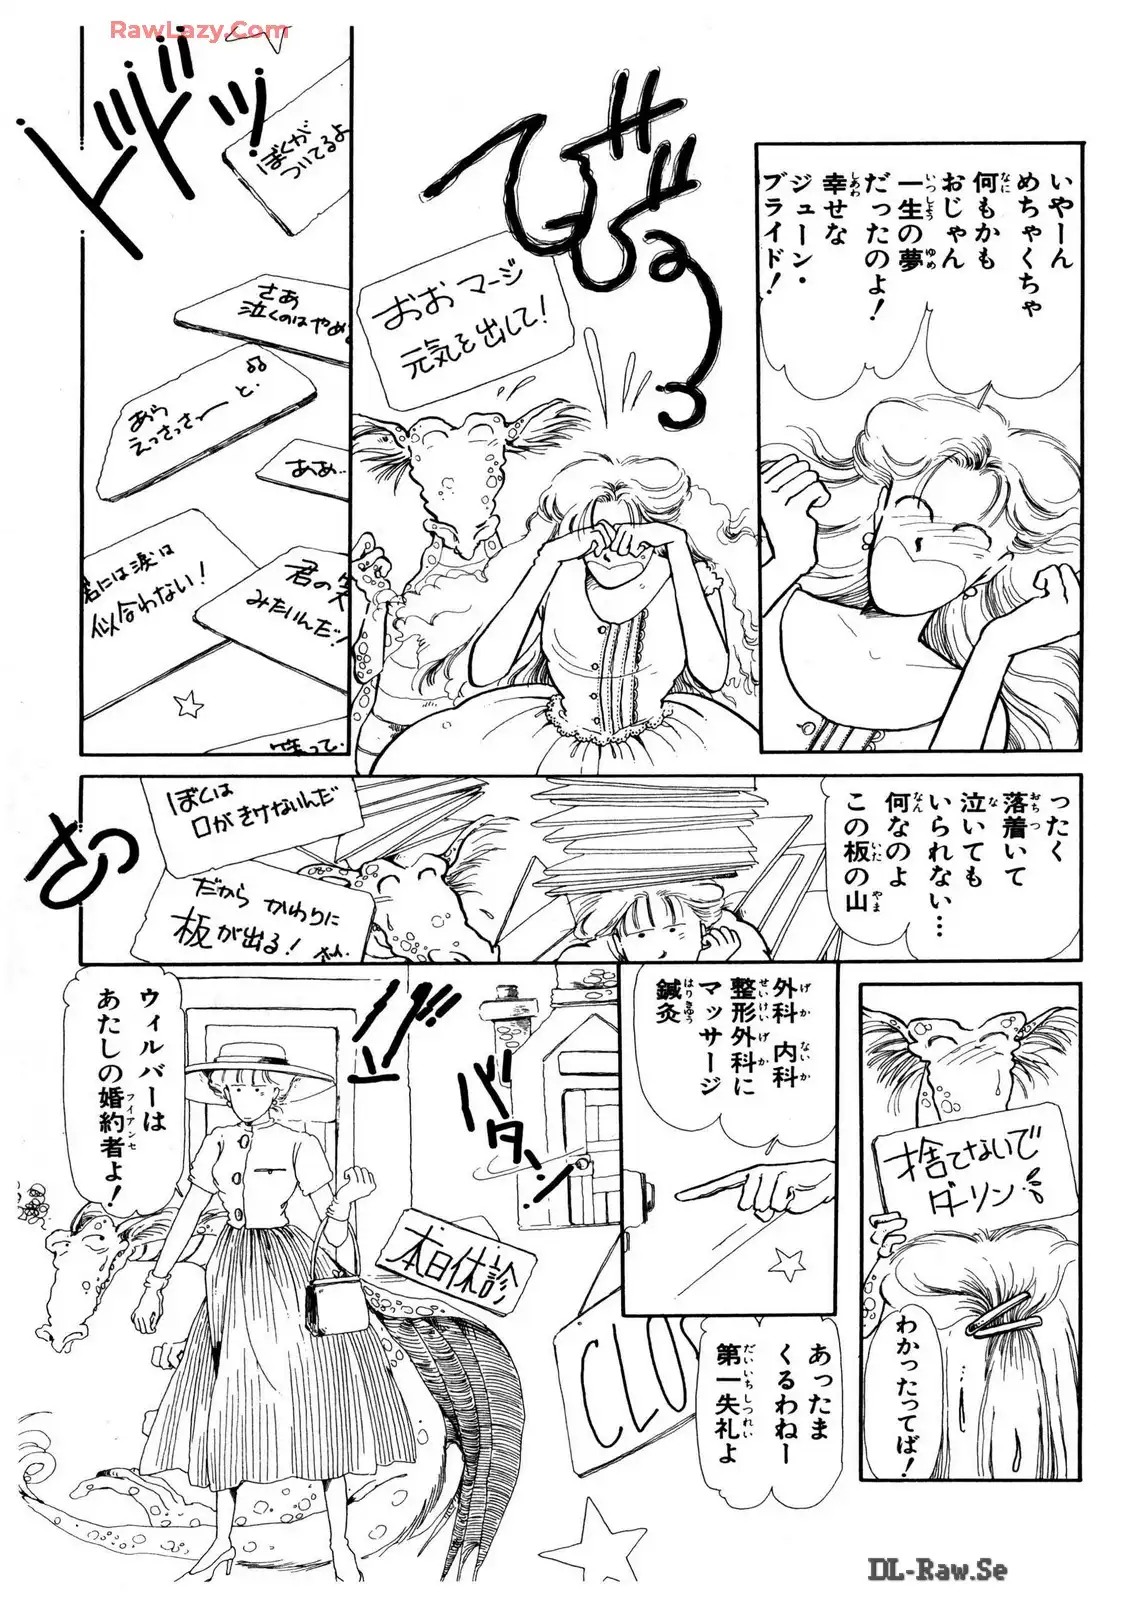 RawLazy.Com
いやーん
めちゃくちゃ
何もかも
おじゃん
一生の夢
だったのよ!
幸せな
ジューン・
ブライド!
びぇー
おおマージ
元気を出して!
ドドドッ
ぼくが
ついてるよ
さあ
泣くのはやめ
あら
えっさっさー
と.
ああ…
君には涙は
似合わない!
君の笑
みたいんだ!
笑って.
ったく
落着いて
泣いても
いられない…
何なのよ
この板の山
ぼくは
口がきけないんだ
だから かわりに
板が出る!
さっ
捨てないで
ダーリン
わかったってば!
外科 内科
整形外科に
マッサージ
鍼灸
あったま
くるわねー
第一失礼よ
CLO
バタン
本日休診
ウィルバーは
あたしの婚約者よ!
フィアンセ
DL-Raw.Se